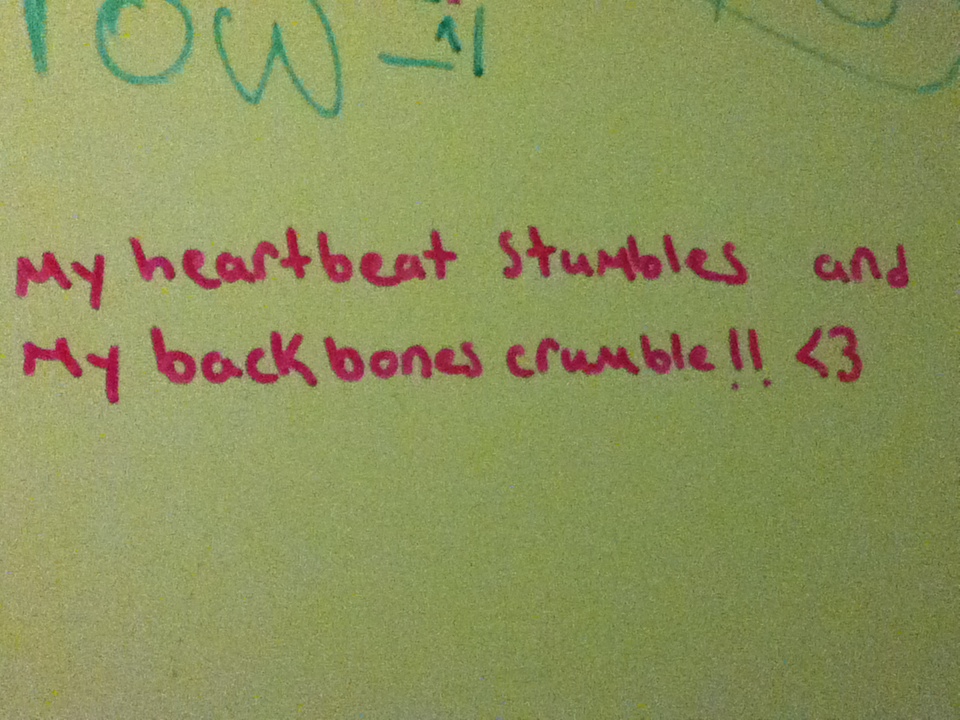 My heartbeat stumbles and
My backbones crumble!! <3